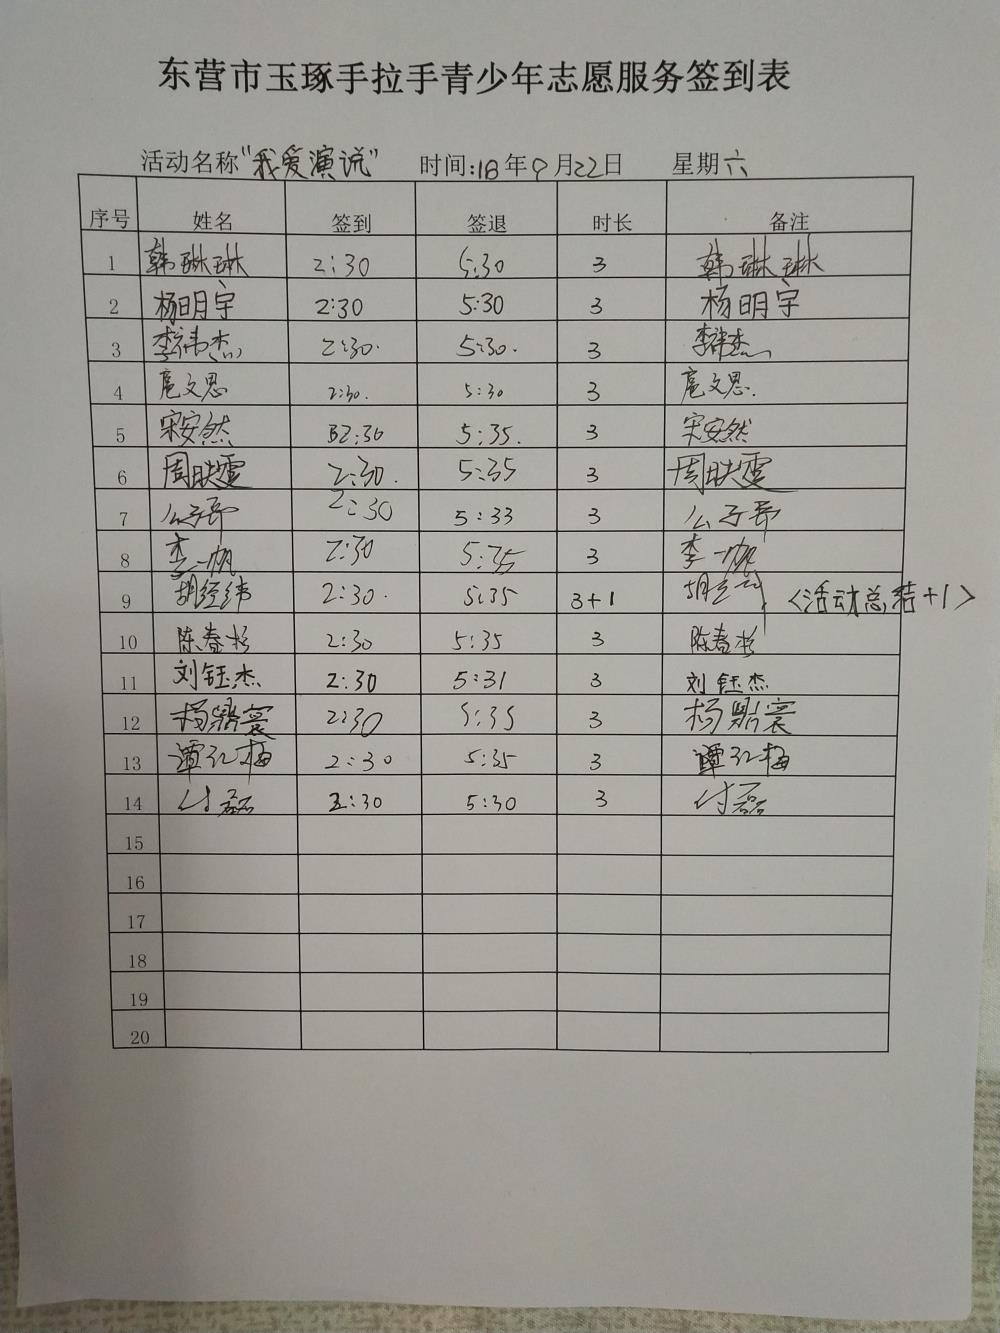 东营市玉琢手拉手青少年志愿服务签到表
活动名称"我爱演说" 时间:18年9月22日 星期六
序号 姓名 签到 签退 时长 备注
1 韩琳琳 2:30 5:30 3 韩琳琳
2 杨明宇 2:30 5:30 3 杨明宇
3 李祎杰 2:30. 5:30. 3 李祎杰
4 扈文思 2:30. 5:30 3 扈文思.
5 宋安然 2:30 5:35. 3 宋安然
6 周映雯 2:30. 5:35 3 周映雯
7 2:30 5:33 3
8 李一帆 2:30 5:35 3 李一帆
9 胡经纬 2:30. 5:35 3+1 <活动总结+1>
10 陈春杉 2:30 5:35 3 陈春杉
11 刘钰杰 2:30 5:31 3 刘钰杰
12 杨鼎寰 2:30 5:35 3 杨鼎寰
13 谭红梅 2:30 5:35 3 谭红梅
14 付磊 2:30 5:30 3 付磊
15
16
17
18
19
20